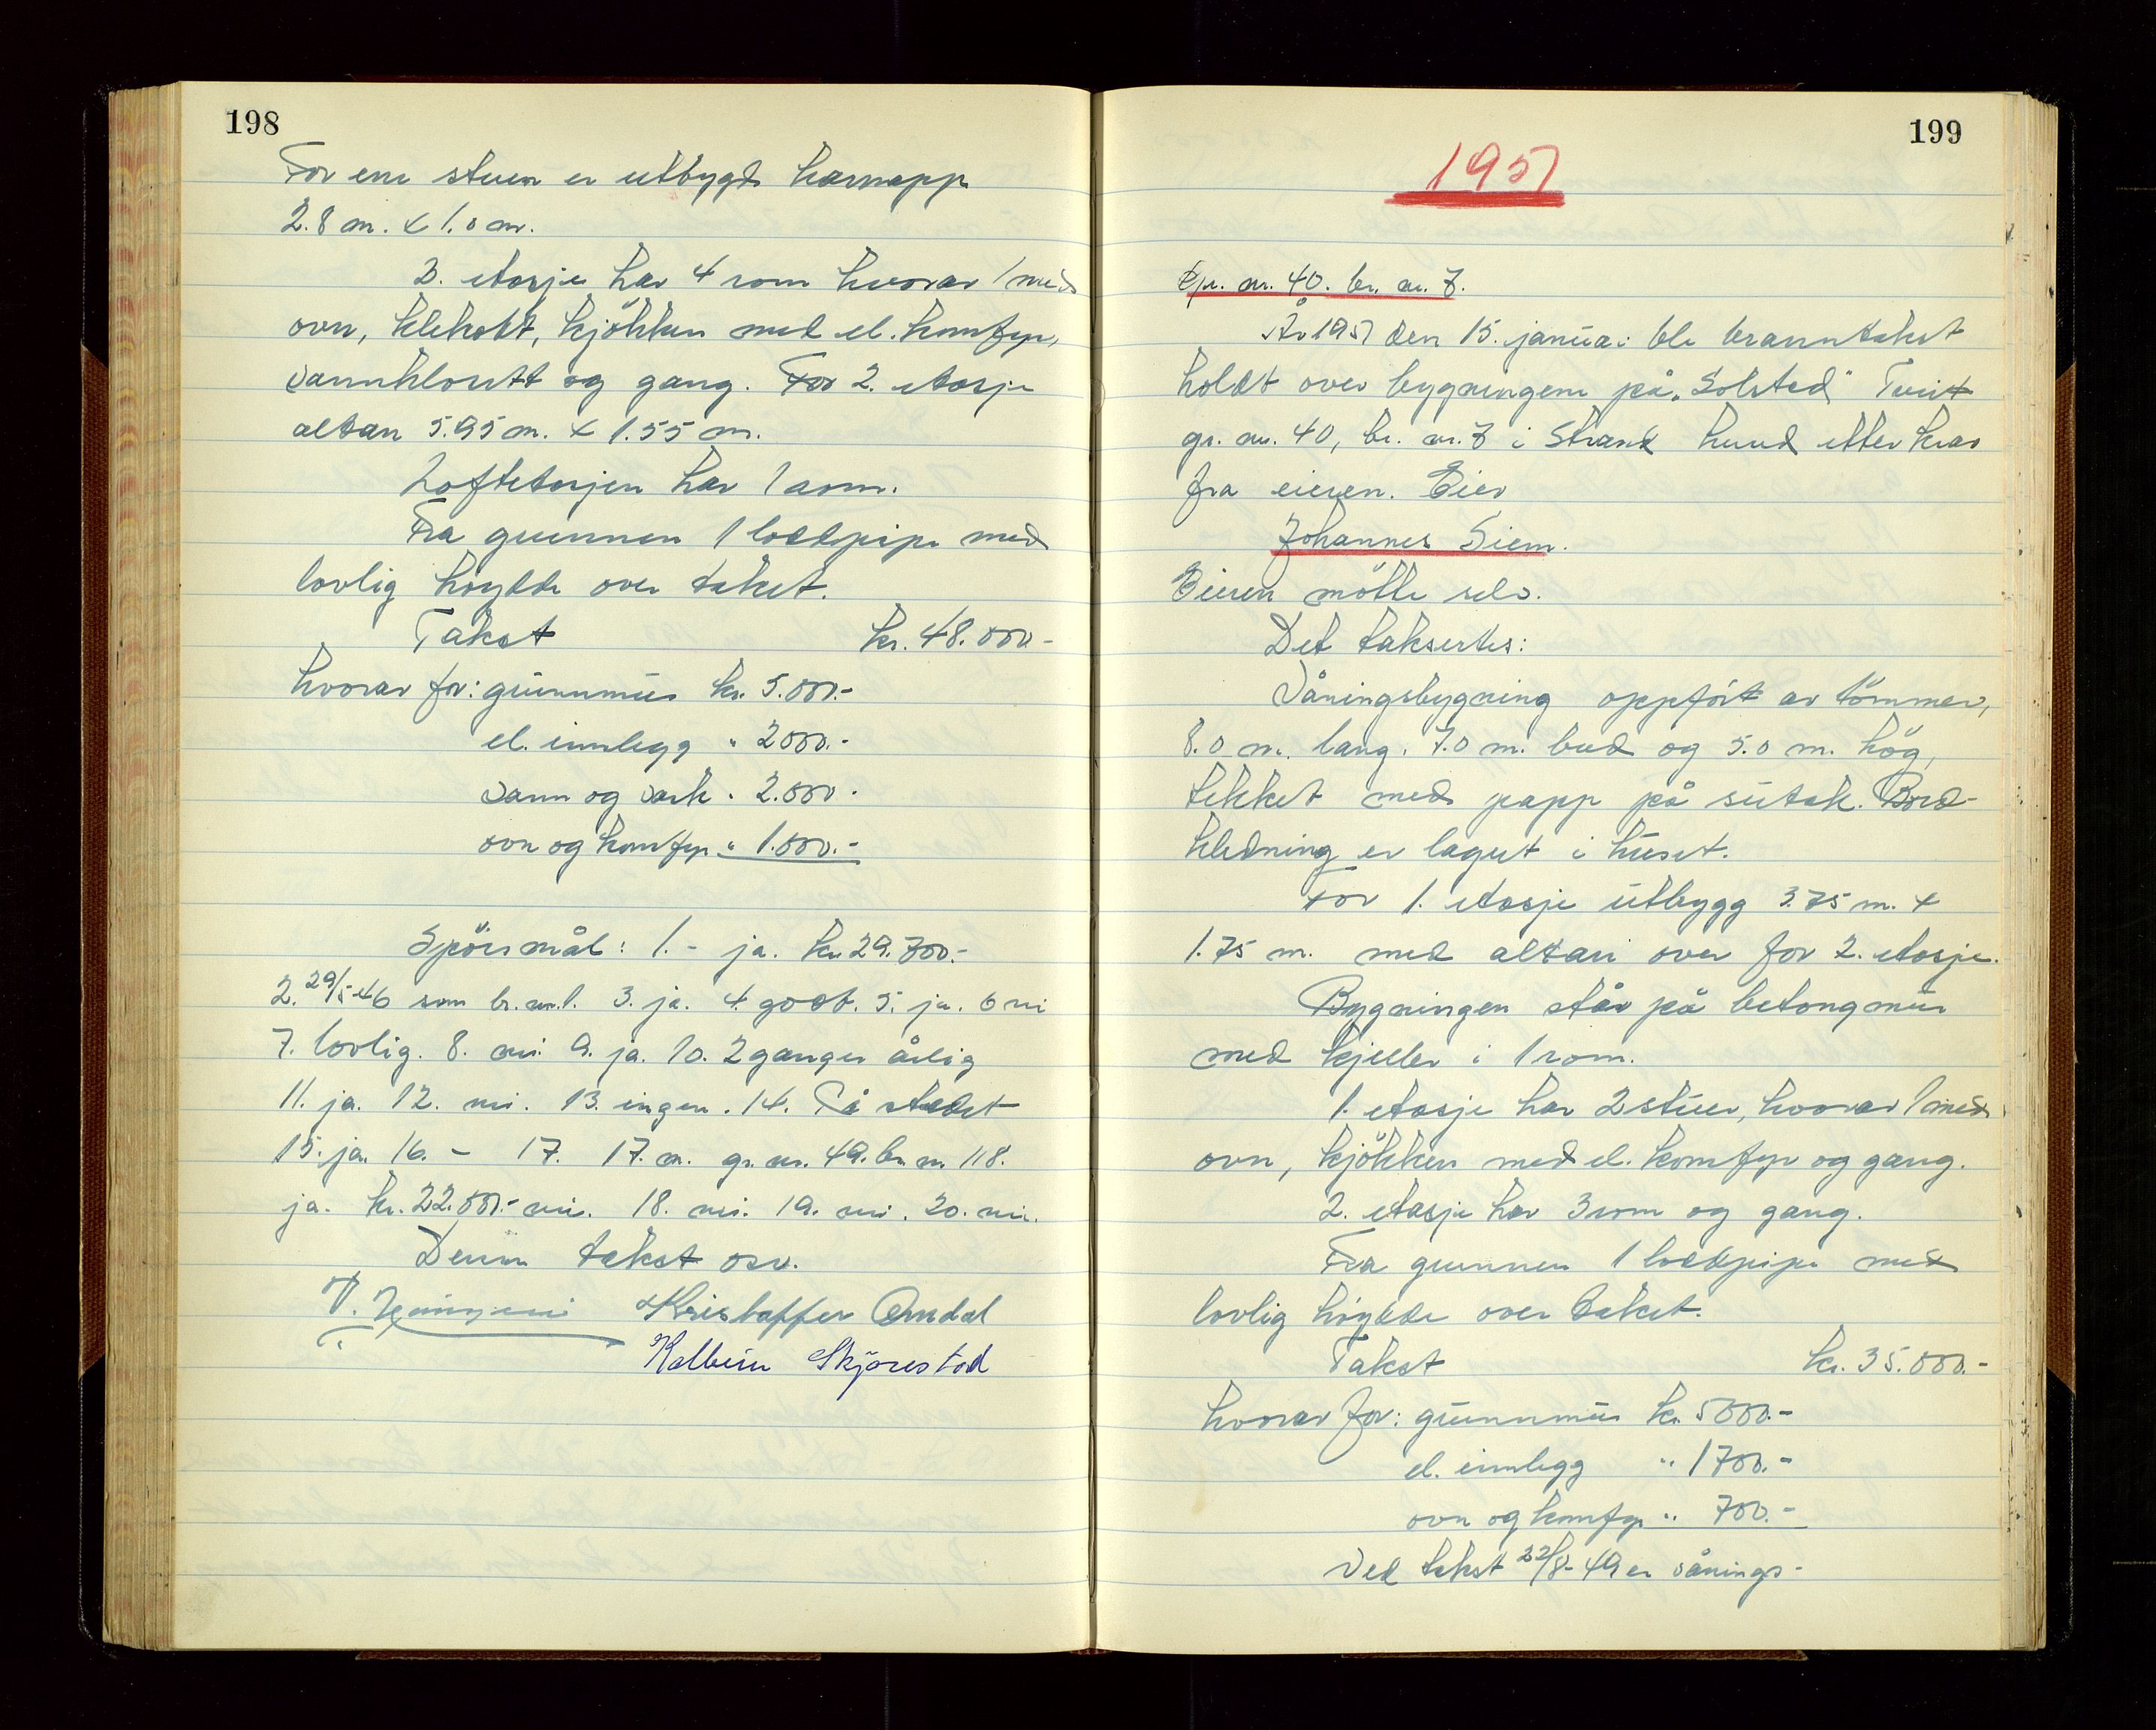 198
For ene stuen er utbygd karnapp
2.8 m. x 1.0 m.
2. etasje har 4 rom hvorav 1 med
ovn, klekott, kjökken med el. komfyr,
vannklosett og gang. For 2. etasje
altan 5.95 m. x 1.55 m.
Loftetasjen har 1 rom.
Fra grunnen 1 loddpipe med
lovlig höydde over taket.
Takst kr. 48.000.-
hvorav for: grunnmur kr. 5.000.-
el. innlegg " 2000.-
vann og vask " 2.000.-
ovn og komfyr " 1.000.-
Spörsmål: 1. - ja. kr. 29.700.-
2. 29/5-46 som br.nr.1. 3. ja. 4. godt. 5. ja. 6 nei
7. lovlig. 8. nei. 9. ja. 10. 2 ganger årlig
11. ja. 12. nei. 13. ingen. 14. På stedet
15. ja. 16. - 17. 17. a. gr. nr. 49. br. nr. 118.
ja. kr. 22.000.- nei. 18. nei. 19. nei. 20. nei.
Denne takst osv.
Kristoffer Amdal
Kolbein Skjørestad
199
1951
Gr. nr. 40. br. nr. 7.
År 1951 den 15. januar ble branntakst
holdt over bygningene på "Solstad" Tveit
gr. nr. 40, br. nr. 7 i Strand herred etter krav
fra eieren. Eier
Johannes Siem.
Eieren mötte selv.
Det taksertes:
Våningsbygning oppfört av tömmer,
8.0 m. lang, 7.0 m. bred og 5.0 m. hög,
tekket med papp på sutak. Bord-
kledning er lagret i huset.
For 1. etasje utbygg 3.75 m. x
1.75 m. med altan over for 2. etasje.
Bygningen står på betongmur
med kjeller i 1 rom.
1. etasje har 2 stuer, hvorav 1 med
ovn, kjökken med el. komfyr og gang.
2. etasje har 3 rom og gang.
Fra grunnen 1 loddpipe med
lovlig höydde over taket.
Takst kr. 35.000.-
hvorav for: grunnmur kr. 5000.-
el. innlegg " 1700.-
ovn og komfyr " 700.-
Ved takst 22/8-49 er vånings-